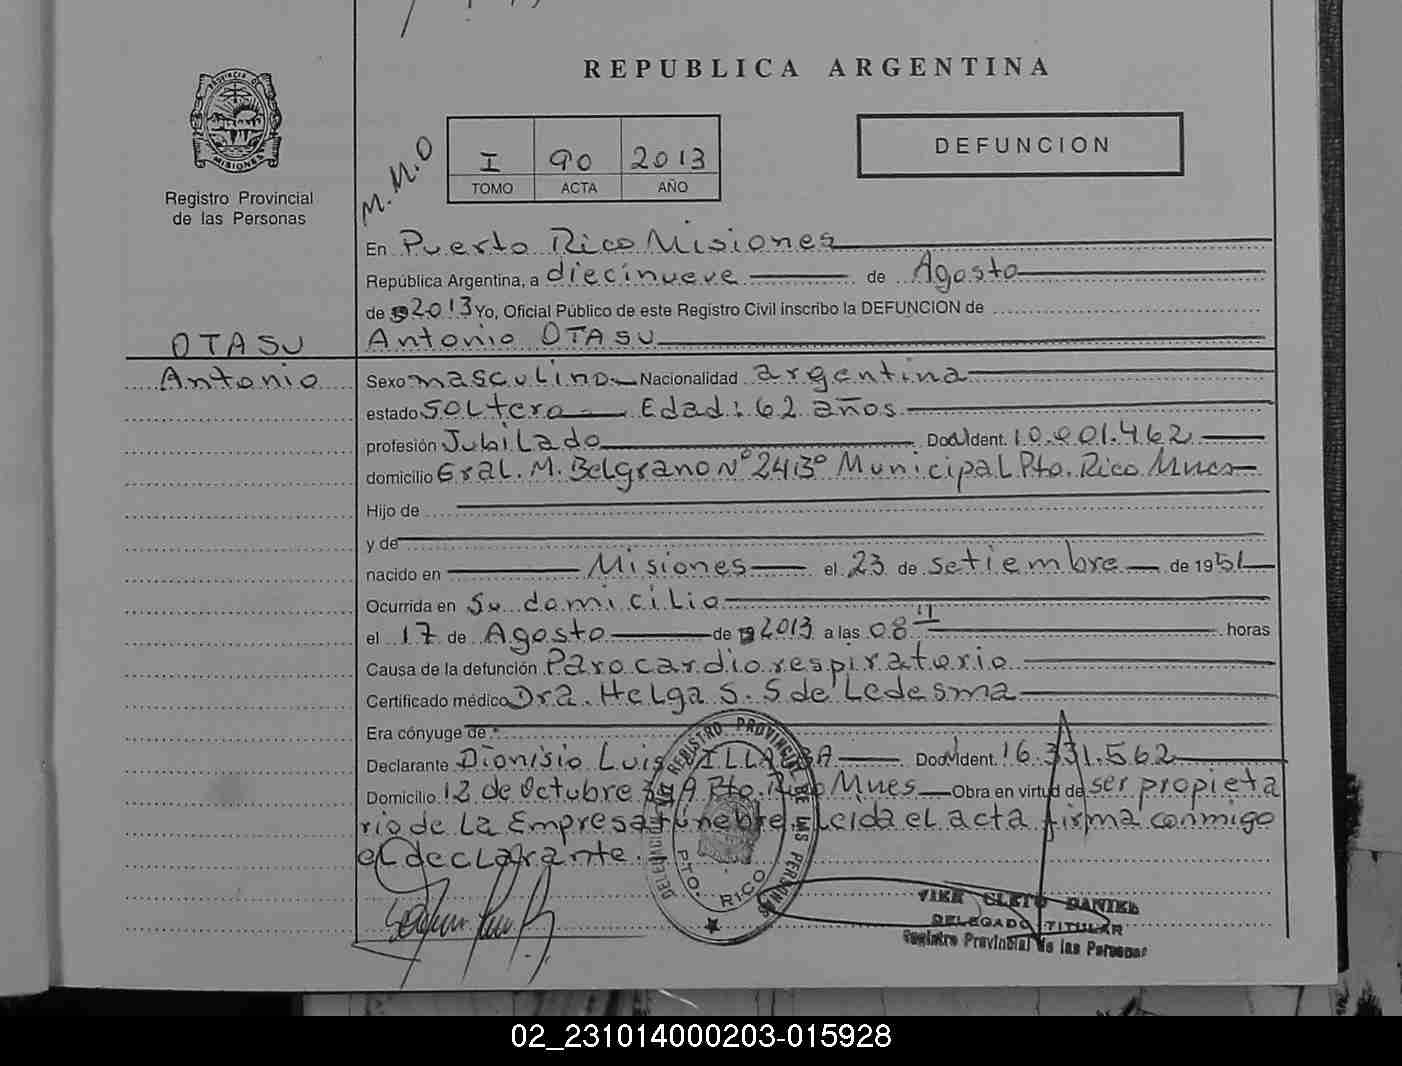 REPUBLICA ARGENTINA
PROVINCIA DE MISIONES
Registro Provincial
de las Personas
M.M.O
I 90 2013
TOMO ACTA AÑO
DEFUNCION
En Puerto Rico Misiones
República Argentina, a diecinueve de Agosto
de 2013 Yo, Oficial Público de este Registro Civil inscribo la DEFUNCION de
OTASU
Antonio OTASU
Antonio
Sexo masculino Nacionalidad argentina
estado soltero Edad: 62 años
profesión Jubilado Doc. Ident. 10.001.462
domicilio Gral. M. Belgrano Nº 243 Bº Municipal Pto. Rico Mnes
Hijo de
y de
nacido en Misiones el 23 de setiembre de 1951
Ocurrida en Su domicilio
el 17 de Agosto de 2013 a las 08 horas
Causa de la defunción Paro cardio respiratorio
Certificado médico Dra. Helga S. S de Ledesma
Era cónyuge de
Declarante Dionisio Luis Doc. Ident. 16.331.562
Domicilio 12 de Octubre Pto. Rico Mnes Obra en virtud de ser propieta
rio de la Empresa fúnebre. Leida el acta firma conmigo
el declarante.
DELEGACION DEL REGISTRO PROVINCIAL DE LAS PERSONAS
PTO. RICO
CLETO DANIEL
DELEGADO TITULAR
Registro Provincial de las Personas
02_231014000203-015928